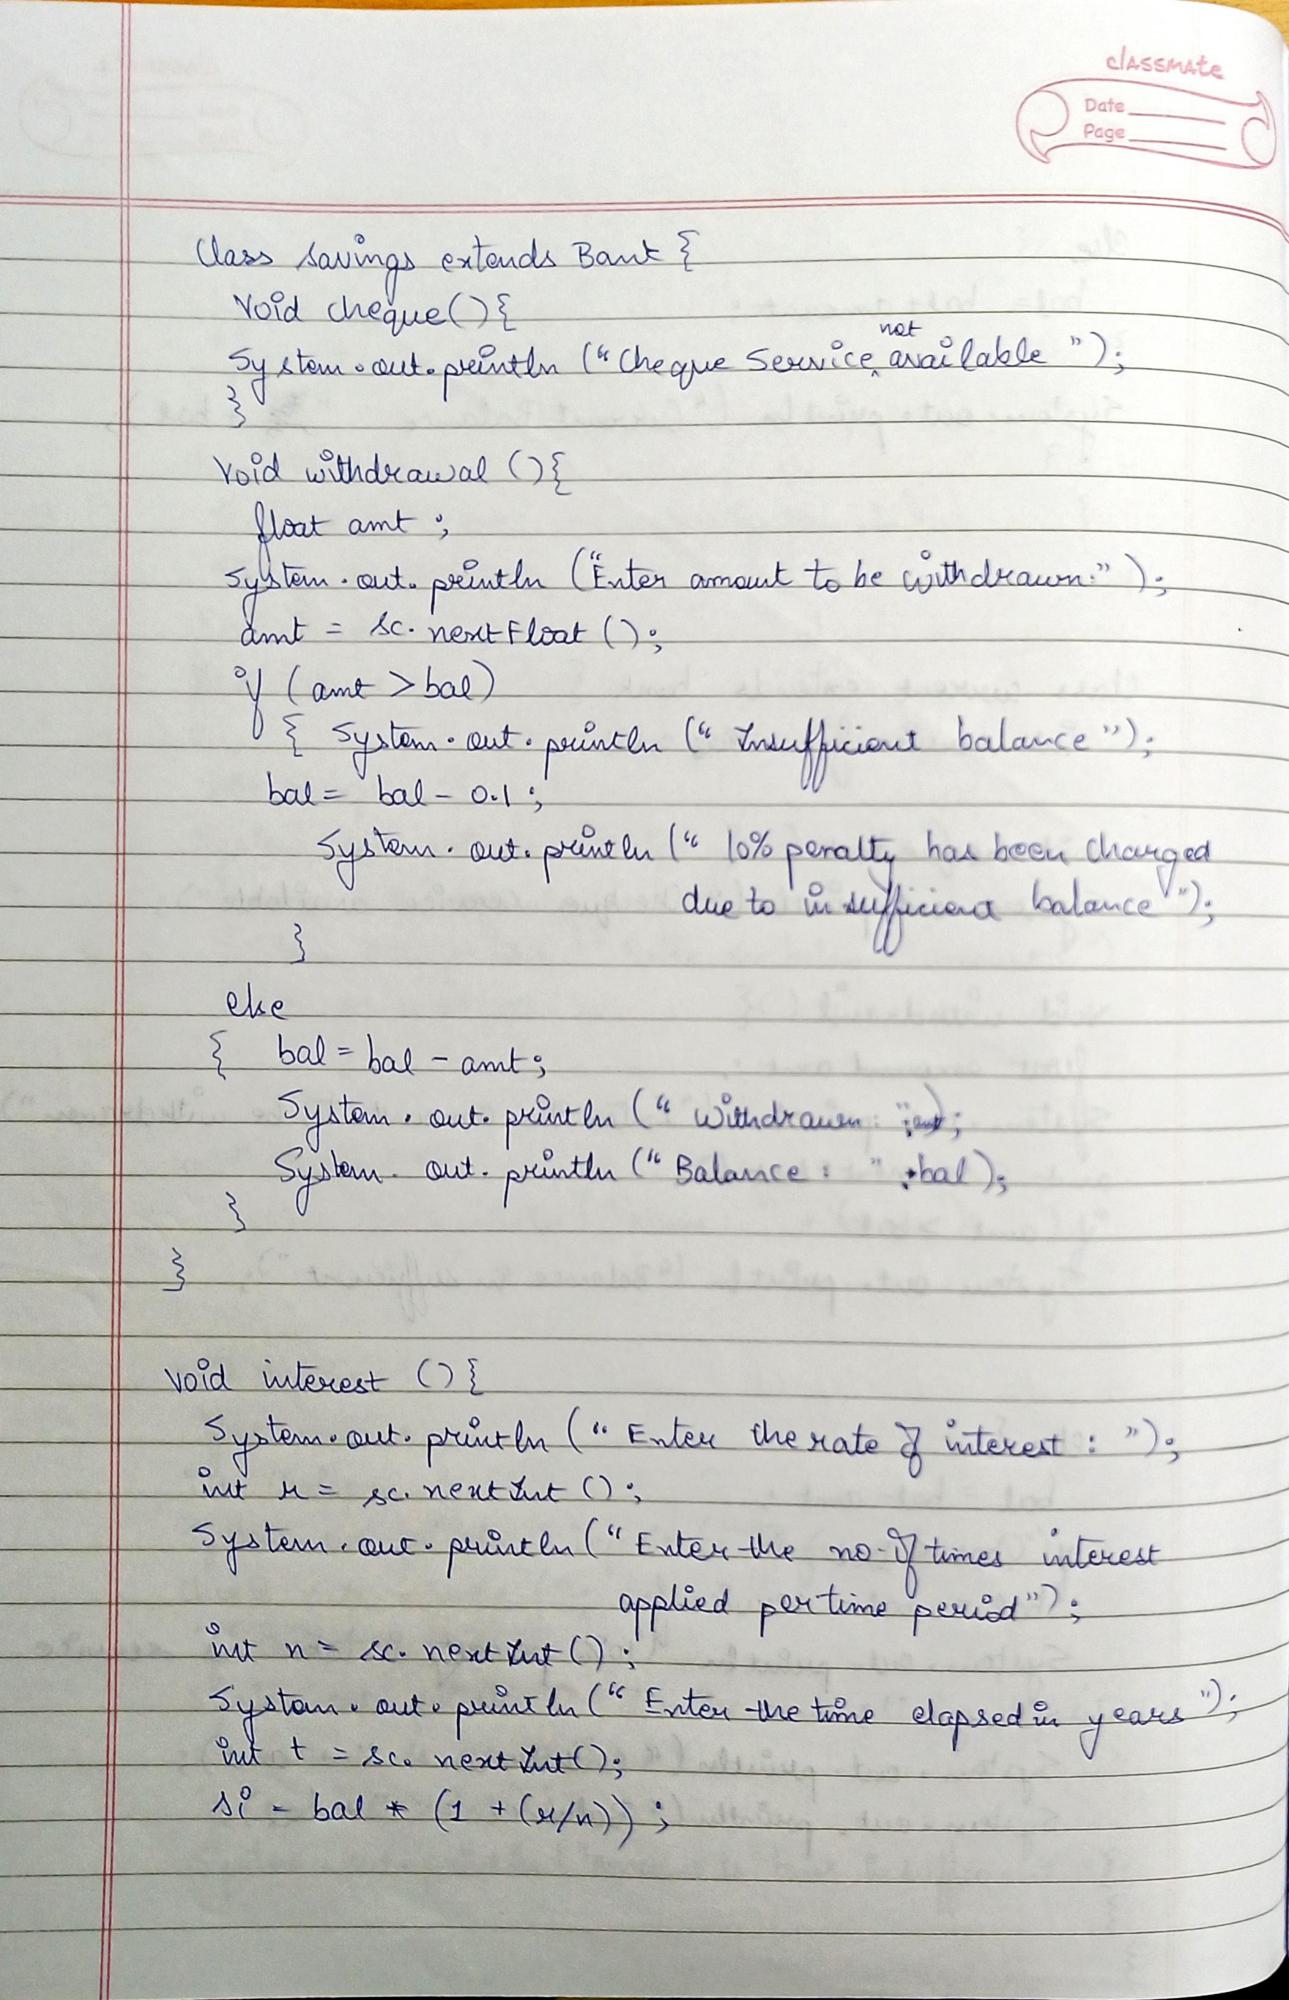 classmate
Date
Page
Class savings extends Bank {
void cheque(){
not
System.out.println ("Cheque Service available");
}
void withdrawal (){
float amt ;
System.out.println ("Enter amount to be withdrawn:");
amt = sc.nextFloat ();
if (amt > bal)
{ System.out.println (" Insufficient balance");
bal = bal - 0.1 ;
System.out.println (" 10% penalty has been charged
due to insufficient balance");
}
else
{ bal = bal - amt;
System.out.println (" Withdrawn :
System.out.println (" Balance : " +bal);
}
}
void interest (){
System.out.println (" Enter the rate of interest : ");
int r = sc.nextInt ();
System.out.println (" Enter the no. of times interest
applied per time period");
int n = sc.nextInt () ;
System.out.println (" Enter the time elapsed in years ");
int t = sc.nextInt();
si = bal * (1 + (r/n)) ;